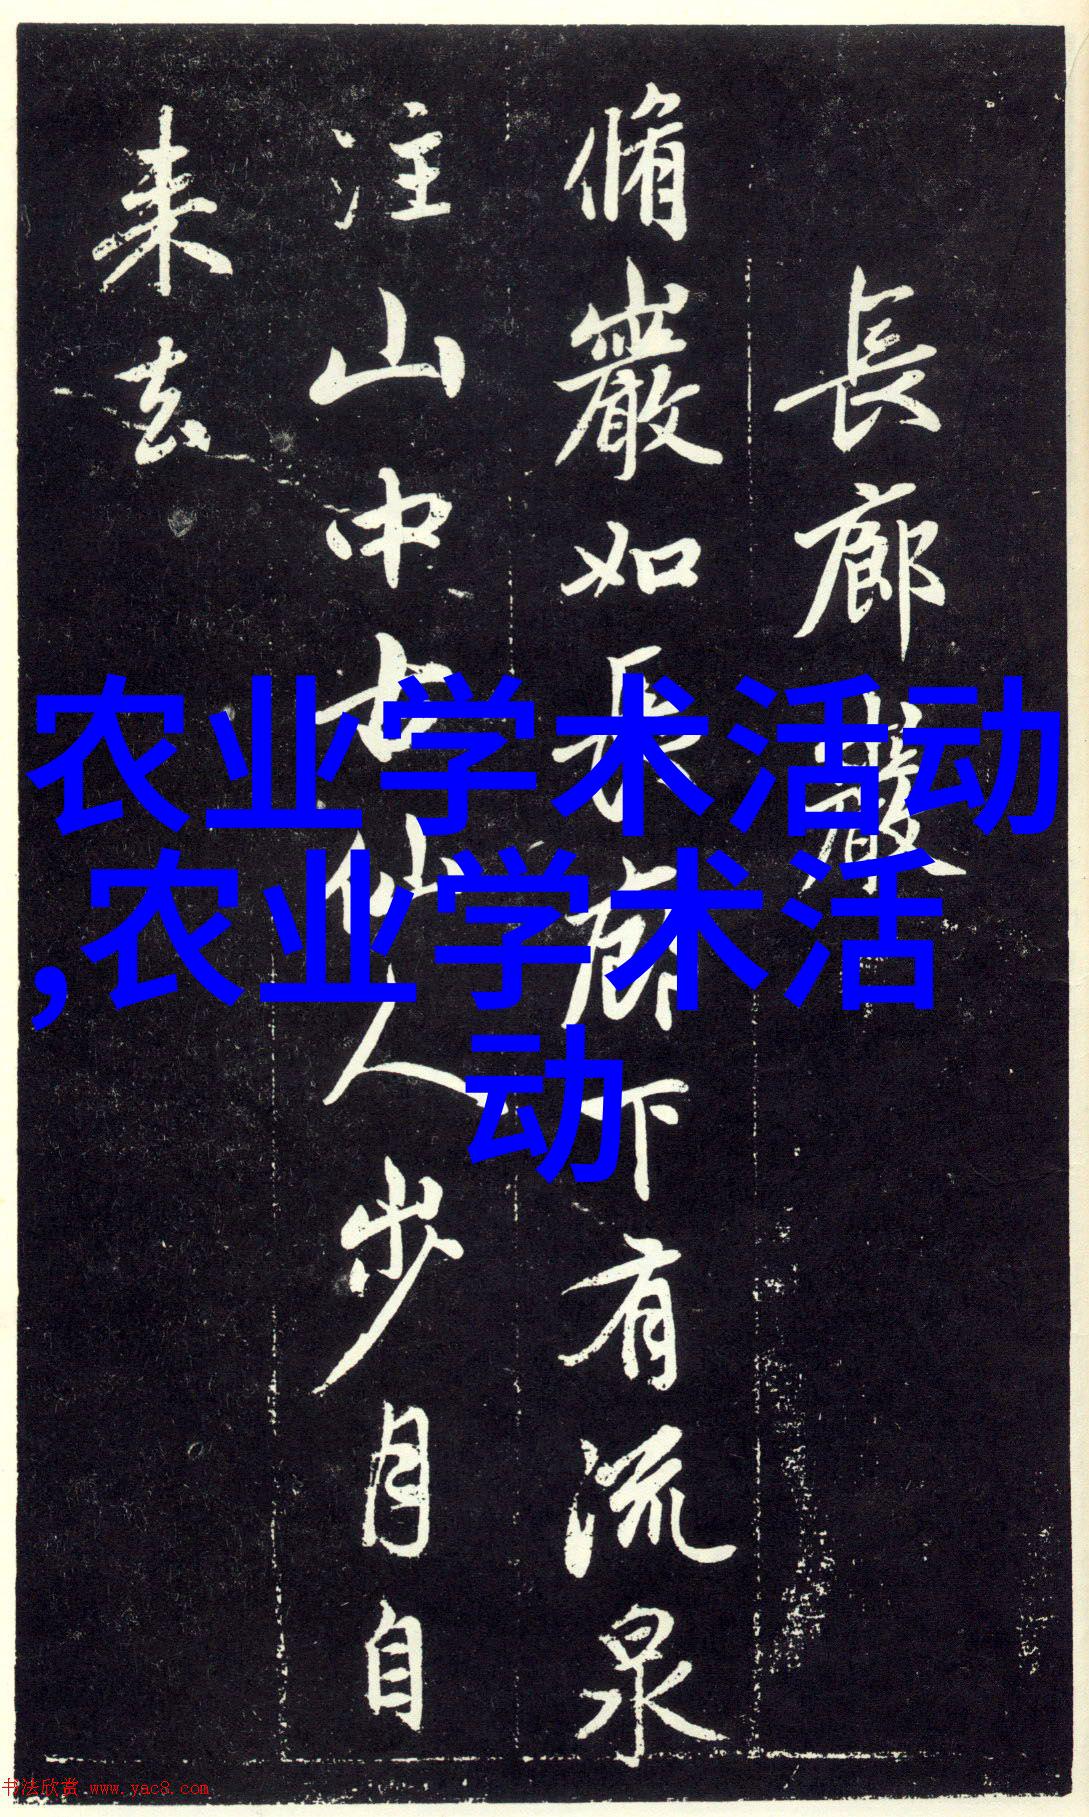 長廊巖
脩巖如長廊下有流泉
注山中古仙人步月自
来去
农业学术活动
,农业学术活
动
书法欣赏 www.yac8.com